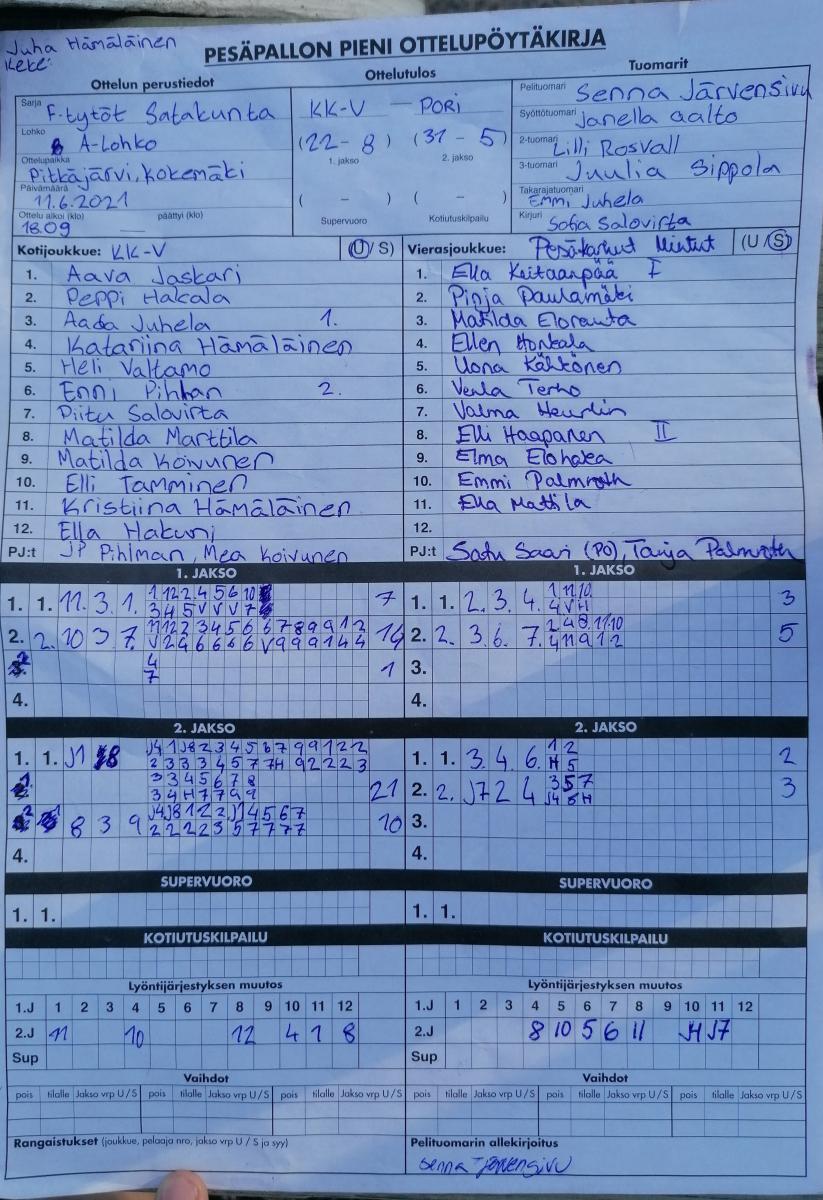 Juha Hämäläinen
Keke:
PESÄPALLON PIENI OTTELUPÖYTÄKIRJA
Ottelun perustiedot
Ottelutulos
Tuomarit
Sarja F-tytöt Satakunta
Lohko A-Lohko
Ottelupaikka Pitkäjärvi, Kokemäki
Päivämäärä 11.6.2021
Ottelu alkoi (klo) päättyi (klo)
18.09
KK-V – PORI
(22 - 8) (31 - 5)
1. jakso 2. jakso
( - ) ( - )
Supervuoro Kotiutuskilpailu
Pelituomari Senna Järvensivu
Syöttötuomari Janella Aalto
2-tuomari Lilli Rosvall
3-tuomari Juulia Sippola
Takarajatuomari Emmi Juhela
Kirjuri Sofia Salovirta
Kotijoukkue: KK-V (U/S)
1. Aava Jaskari
2. Peppi Hakala
3. Aada Juhela 1.
4. Katariina Hämäläinen
5. Heli Valtamo
6. Enni Pihlman 2.
7. Piitu Salovirta
8. Matilda Marttila
9. Matilda Koivunen
10. Elli Tamminen
11. Kristiina Hämäläinen
12. Ella Hakuni
PJ:t JP Pihlman, Mea Koivunen
Vierasjoukkue: Pesäkarhut Mintut (U/S)
1. Ella Keitaanpää I
2. Pinja Paulamäki
3. Matilda Eloranta
4. Ellen Honkala
5. Uona Kähkönen
6. Venla Terho
7. Valma Heurlin
8. Elli Haapanen II
9. Elma Elohaka
10. Emmi Palmroth
11. Ella Mattila
12.
PJ:t Satu Saari (PO), Tanja Palmroth
1. JAKSO
1. 1. 11. 3. 1. 1 12 2 4 5 6 10 7
3 4 5 V V V 7
2. 2. 10 3 7. 11 12 2 3 4 5 6 6 7 8 9 9 1 2 14
V 2 4 6 6 6 6 V 9 9 9 1 4 4
2 4 1
7
4.
1. JAKSO
1. 1. 2. 3. 4. 1 11 10 3
4 V H
2. 2. 3. 6. 7. 2 4 8 11 10 5
4 11 9 1 2
3.
4.
2. JAKSO
1. 1. J1 8 J4 1 J8 2 3 4 5 6 7 9 9 1 2 2
2 3 3 3 4 5 7 7 H 9 2 2 2 3
3 3 4 5 6 7 8 21
3 4 H 7 7 9 9
8 3 9 J4 J8 1 2 2 J1 4 5 6 7 10
2 2 2 2 3 5 7 7 7 7
4.
2. JAKSO
1. 1. 3. 4. 6. 1 2 2
H 5
2. 2. J7 2 4 3 5 7 3
J4 5 H
3.
4.
SUPERVUORO
1. 1.
SUPERVUORO
1. 1.
KOTIUTUSKILPAILU
KOTIUTUSKILPAILU
Lyöntijärjestyksen muutos
1.J 1 2 3 4 5 6 7 8 9 10 11 12
2.J 11 10 12 4 1 8
Sup
Lyöntijärjestyksen muutos
1.J 1 2 3 4 5 6 7 8 9 10 11 12
2.J 8 10 5 6 11 J4 J7
Sup
Vaihdot
pois tilalle Jakso vrp U/S pois tilalle Jakso vrp U/S pois tilalle Jakso vrp U/S
Vaihdot
pois tilalle Jakso vrp U/S pois tilalle Jakso vrp U/S pois tilalle Jakso vrp U/S
Rangaistukset (joukkue, pelaaja nro, jakso vrp U / S ja syy)
Pelituomarin allekirjoitus
Senna Järvensivu